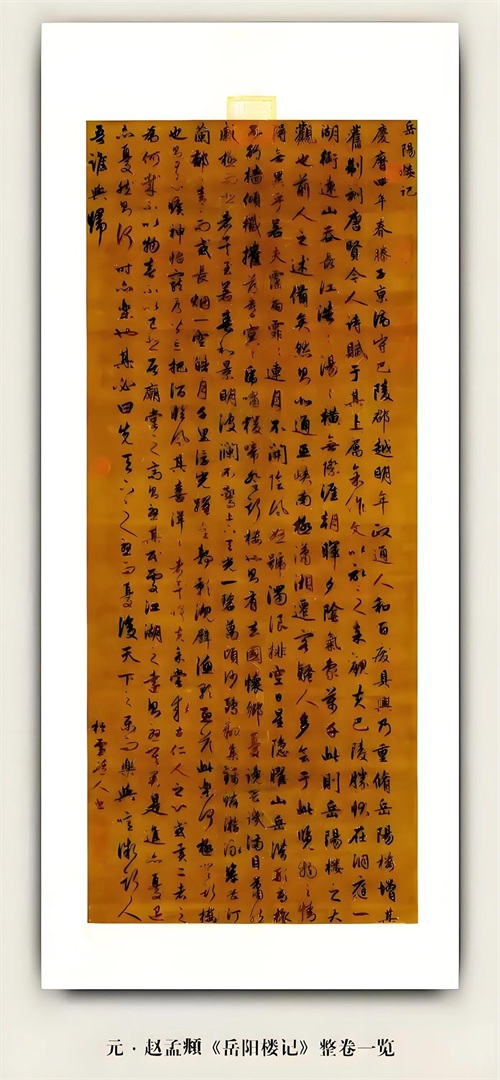 岳陽楼记
慶曆四年春滕子京謫守巴陵郡越明年政通人和百废具興乃重脩岳陽樓增其
舊制刻唐賢今人诗賦于其上属余作文以記之予觀夫巴陵勝状在洞庭一
湖銜遠山吞長江浩〻湯〻横無際涯朝暉夕陰氣象萬千此則岳陽樓之大
觀也前人之述備矣然則北通巫峡南極瀟湘遷客騷人多会于此覽物之情
得無異乎若夫霪雨霏〻連月不開陰风怒號濁浪排空日星隐曜山岳潜形商旅
不行檣傾檝摧薄暮冥〻虎嘯猨啼登斯楼也則有去國懷鄉憂讒畏譏滿目蕭然
感極而悲者矣至若春和景明波瀾不驚上下天光一碧萬頃沙鷗翔集錦鱗游泳岸芷汀
蘭郁〻青〻而或長烟一空皓月千里浮光躍金静影沉璧漁歌互答此樂何極登斯樓
也則有心曠神怡寵辱皆忘把酒临风其喜洋〻者矣嗟夫予嘗求古仁人之心或異二者之
為何哉不以物喜不以己悲居廟堂之高則憂其民處江湖之遠則憂其君是進亦憂退
亦憂然則何时而樂也其必曰先天下之憂而憂後天下之樂而樂與噫微斯人
吾誰與歸
松雪道人书
元·赵孟頫《岳阳楼记》整卷一览